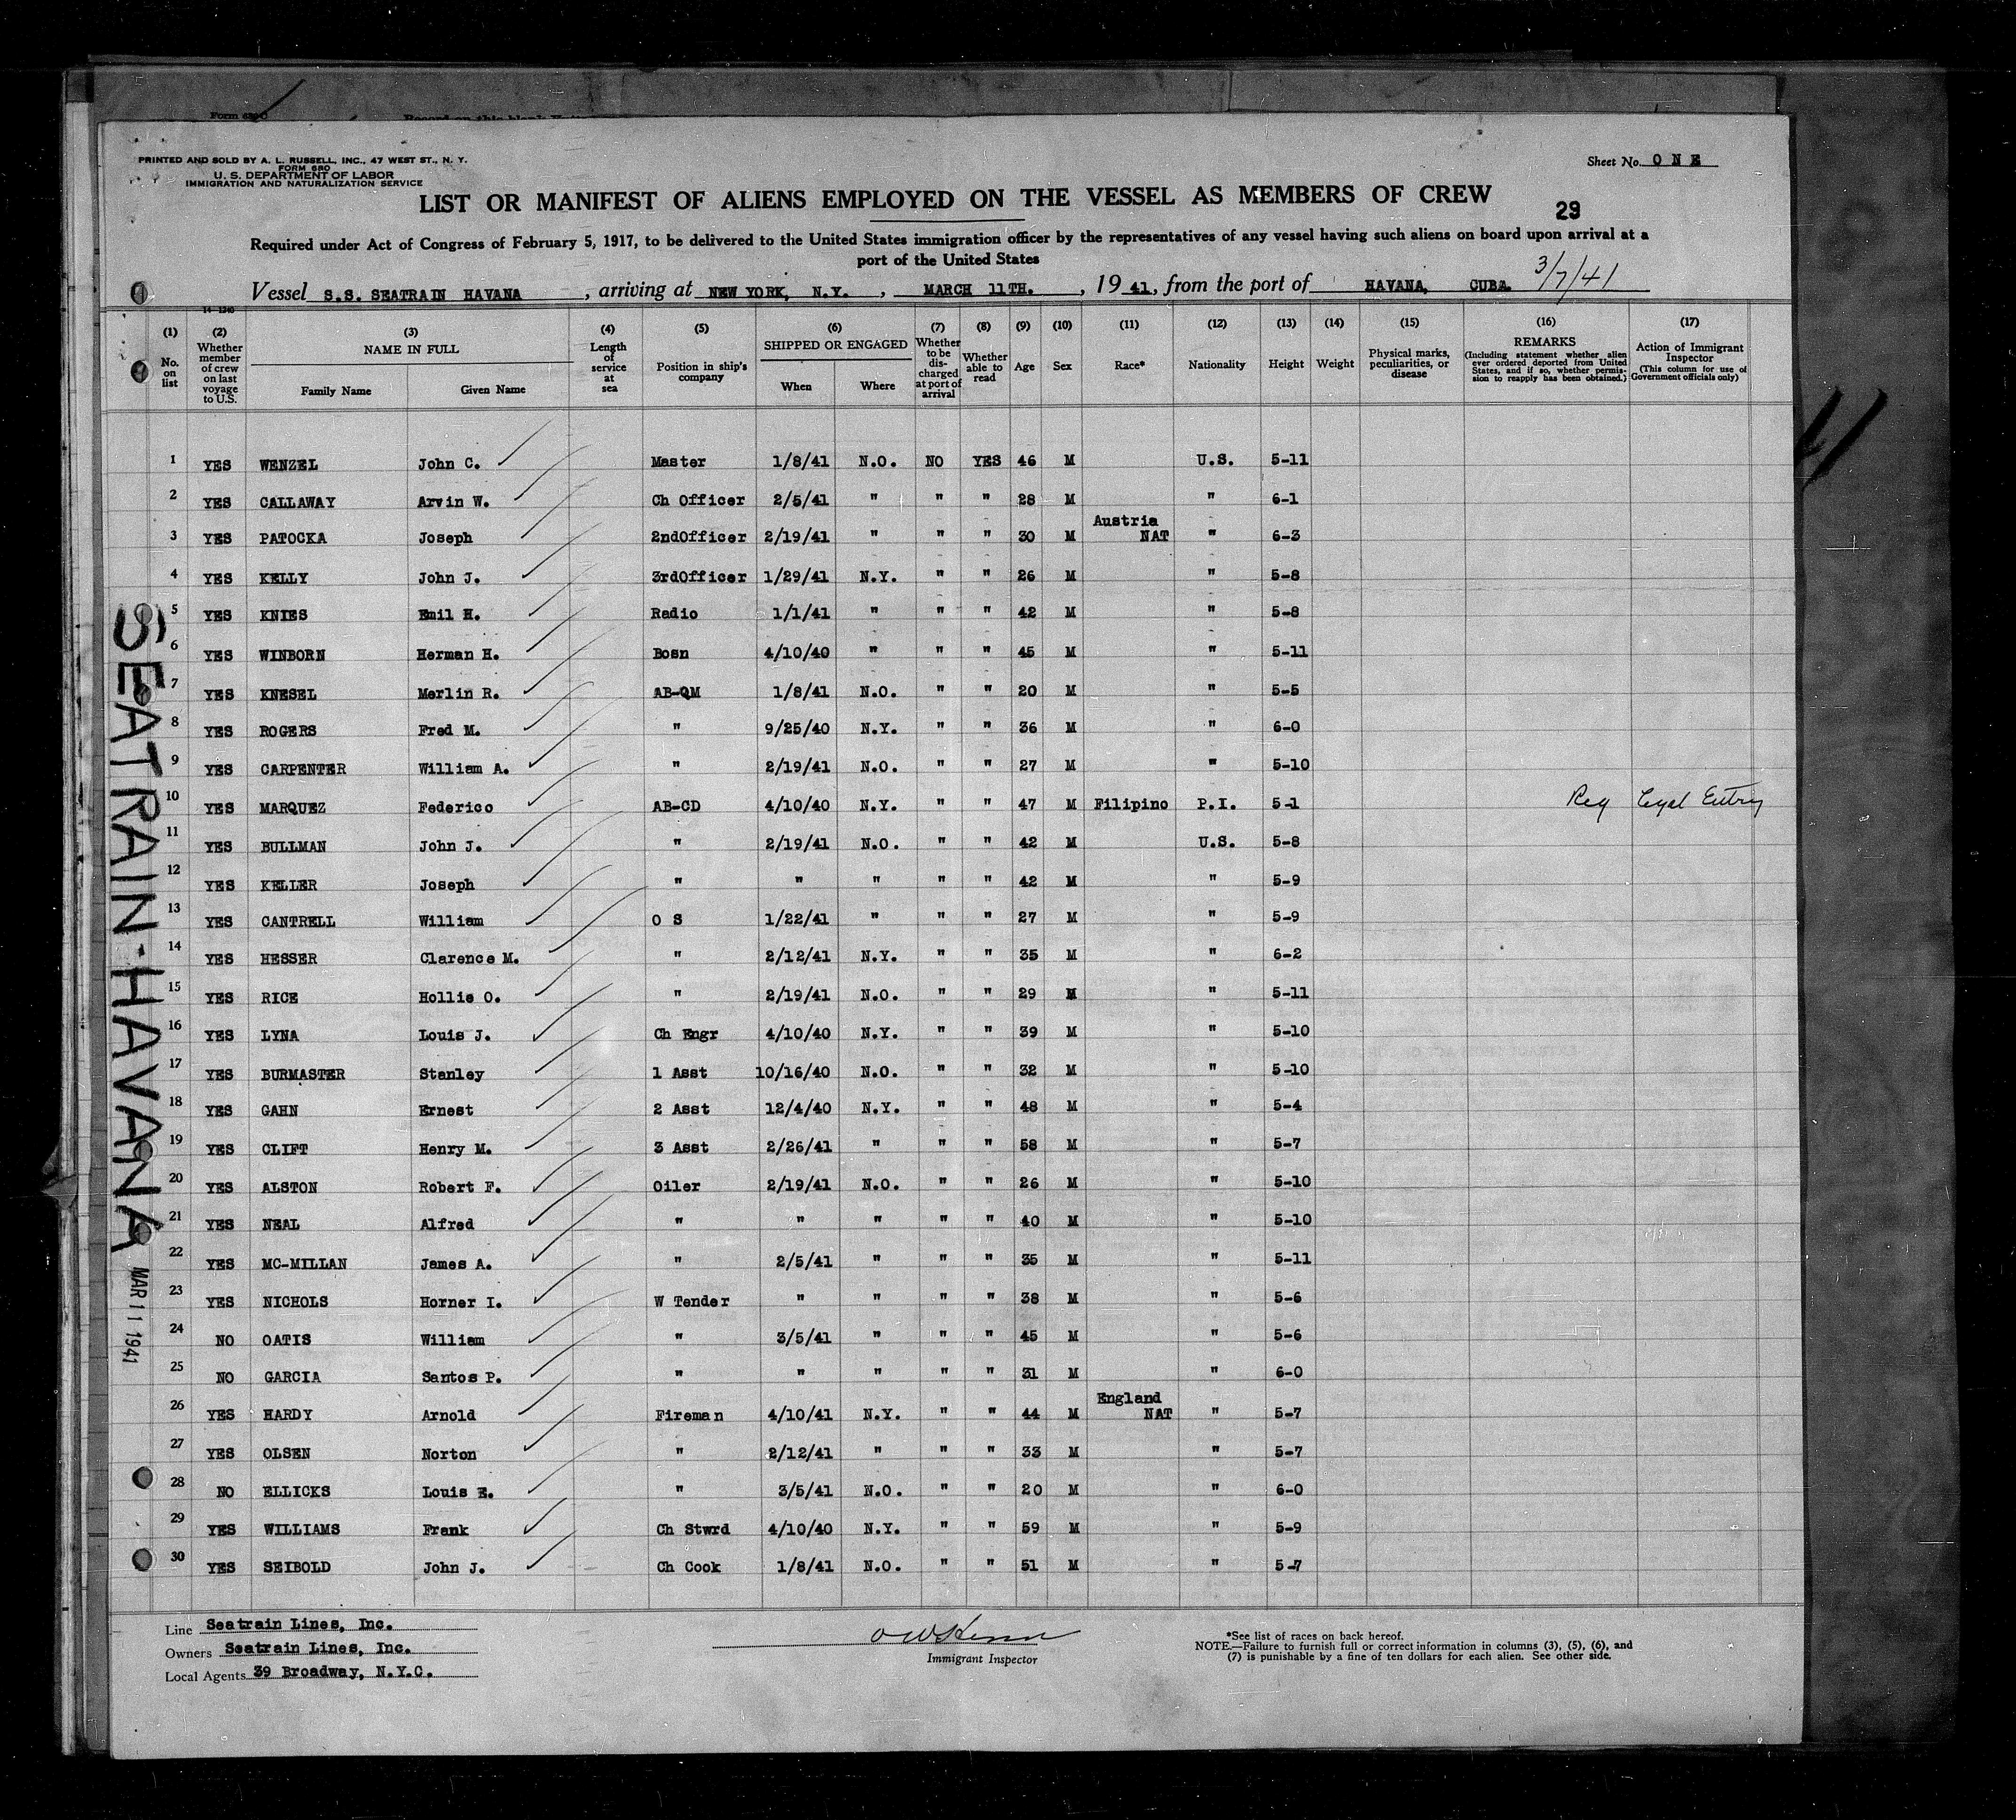 Form 680
PRINTED AND SOLD BY A. L. RUSSELL, INC., 47 WEST ST., N. Y.
FORM 680
U. S. DEPARTMENT OF LABOR
IMMIGRATION AND NATURALIZATION SERVICE
Sheet No. ONE
LIST OR MANIFEST OF ALIENS EMPLOYED ON THE VESSEL AS MEMBERS OF CREW
29
Required under Act of Congress of February 5, 1917, to be delivered to the United States immigration officer by the representatives of any vessel having such aliens on board upon arrival at a
port of the United States
Vessel S.S. SEATRAIN HAVANA, arriving at NEW YORK, N.Y., MARCH 11TH., 1941, from the port of HAVANA, CUBA. 3/7/41
14-1240
(1) No. on list (2) Whether member of crew on last voyage to U.S. (3) NAME IN FULL Family Name Given Name (4) Length of service at sea (5) Position in ship's company (6) SHIPPED OR ENGAGED When Where (7) Whether to be discharged at port of arrival (8) Whether able to read (9) Age (10) Sex (11) Race* (12) Nationality (13) Height (14) Weight (15) Physical marks, peculiarities, or disease (16) REMARKS (Including statement whether alien ever ordered deported from United States, and if so, whether permission to reapply has been obtained.) (17) Action of Immigrant Inspector (This column for use of Government officials only)
1 YES WENZEL John C. Master 1/8/41 N.O. NO YES 46 M U.S. 5-11
2 YES CALLAWAY Arvin W. Ch Officer 2/5/41 " " " 28 M " 6-1
3 YES PATOCKA Joseph 2ndOfficer 2/19/41 " " " 30 M Austria NAT " 6-3
4 YES KELLY John J. 3rdOfficer 1/29/41 N.Y. " " 26 M " 5-8
5 YES KNIES Emil H. Radio 1/1/41 " " " 42 M " 5-8
6 YES WINBORN Herman H. Bosn 4/10/40 " " " 45 M " 5-11
7 YES KNESEL Merlin R. AB-QM 1/8/41 N.O. " " 20 M " 5-5
8 YES ROGERS Fred M. " 9/25/40 N.Y. " " 36 M " 6-0
9 YES CARPENTER William A. " 2/19/41 N.O. " " 27 M " 5-10
10 YES MARQUEZ Federico AB-CD 4/10/40 N.Y. " " 47 M Filipino P.I. 5-1 Reg Legal Entry
11 YES BULLMAN John J. " 2/19/41 N.O. " " 42 M U.S. 5-8
12 YES KELLER Joseph " " " " " 42 M " 5-9
13 YES CANTRELL William O S 1/22/41 " " " 27 M " 5-9
14 YES HESSER Clarence M. " 2/12/41 N.Y. " " 35 M " 6-2
15 YES RICE Hollis O. " 2/19/41 N.O. " " 29 M " 5-11
16 YES LYNA Louis J. Ch Engr 4/10/40 N.Y. " " 39 M " 5-10
17 YES BURMASTER Stanley 1 Asst 10/16/40 N.O. " " 32 M " 5-10
18 YES GAHN Ernest 2 Asst 12/4/40 N.Y. " " 48 M " 5-4
19 YES CLIFT Henry M. 3 Asst 2/26/41 " " " 58 M " 5-7
20 YES ALSTON Robert F. Oiler 2/19/41 N.O. " " 26 M " 5-10
21 YES NEAL Alfred " " " " " 40 M " 5-10
22 YES MC-MILLAN James A. " 2/5/41 " " " 35 M " 5-11
23 YES NICHOLS Horner I. W Tender " " " " 38 M " 5-6
24 NO OATIS William " 3/5/41 " " " 45 M " 5-6
25 NO GARCIA Santos P. " " " " " 31 M " 6-0
26 YES HARDY Arnold Fireman 4/10/41 N.Y. " " 44 M England NAT " 5-7
27 YES OLSEN Norton " 2/12/41 " " " 33 M " 5-7
28 NO ELLICKS Louis E. " 3/5/41 N.O. " " 20 M " 6-0
29 YES WILLIAMS Frank Ch Stwrd 4/10/40 N.Y. " " 59 M " 5-9
30 YES SEIBOLD John J. Ch Cook 1/8/41 N.O. " " 51 M " 5-7
SEATRAIN-HAVANA
MAR 11 1941
Line Seatrain Lines, Inc.
Owners Seatrain Lines, Inc.
Local Agents 39 Broadway, N.Y.C.
Immigrant Inspector
*See list of races on back hereof.
NOTE.—Failure to furnish full or correct information in columns (3), (5), (6), and
(7) is punishable by a fine of ten dollars for each alien. See other side.